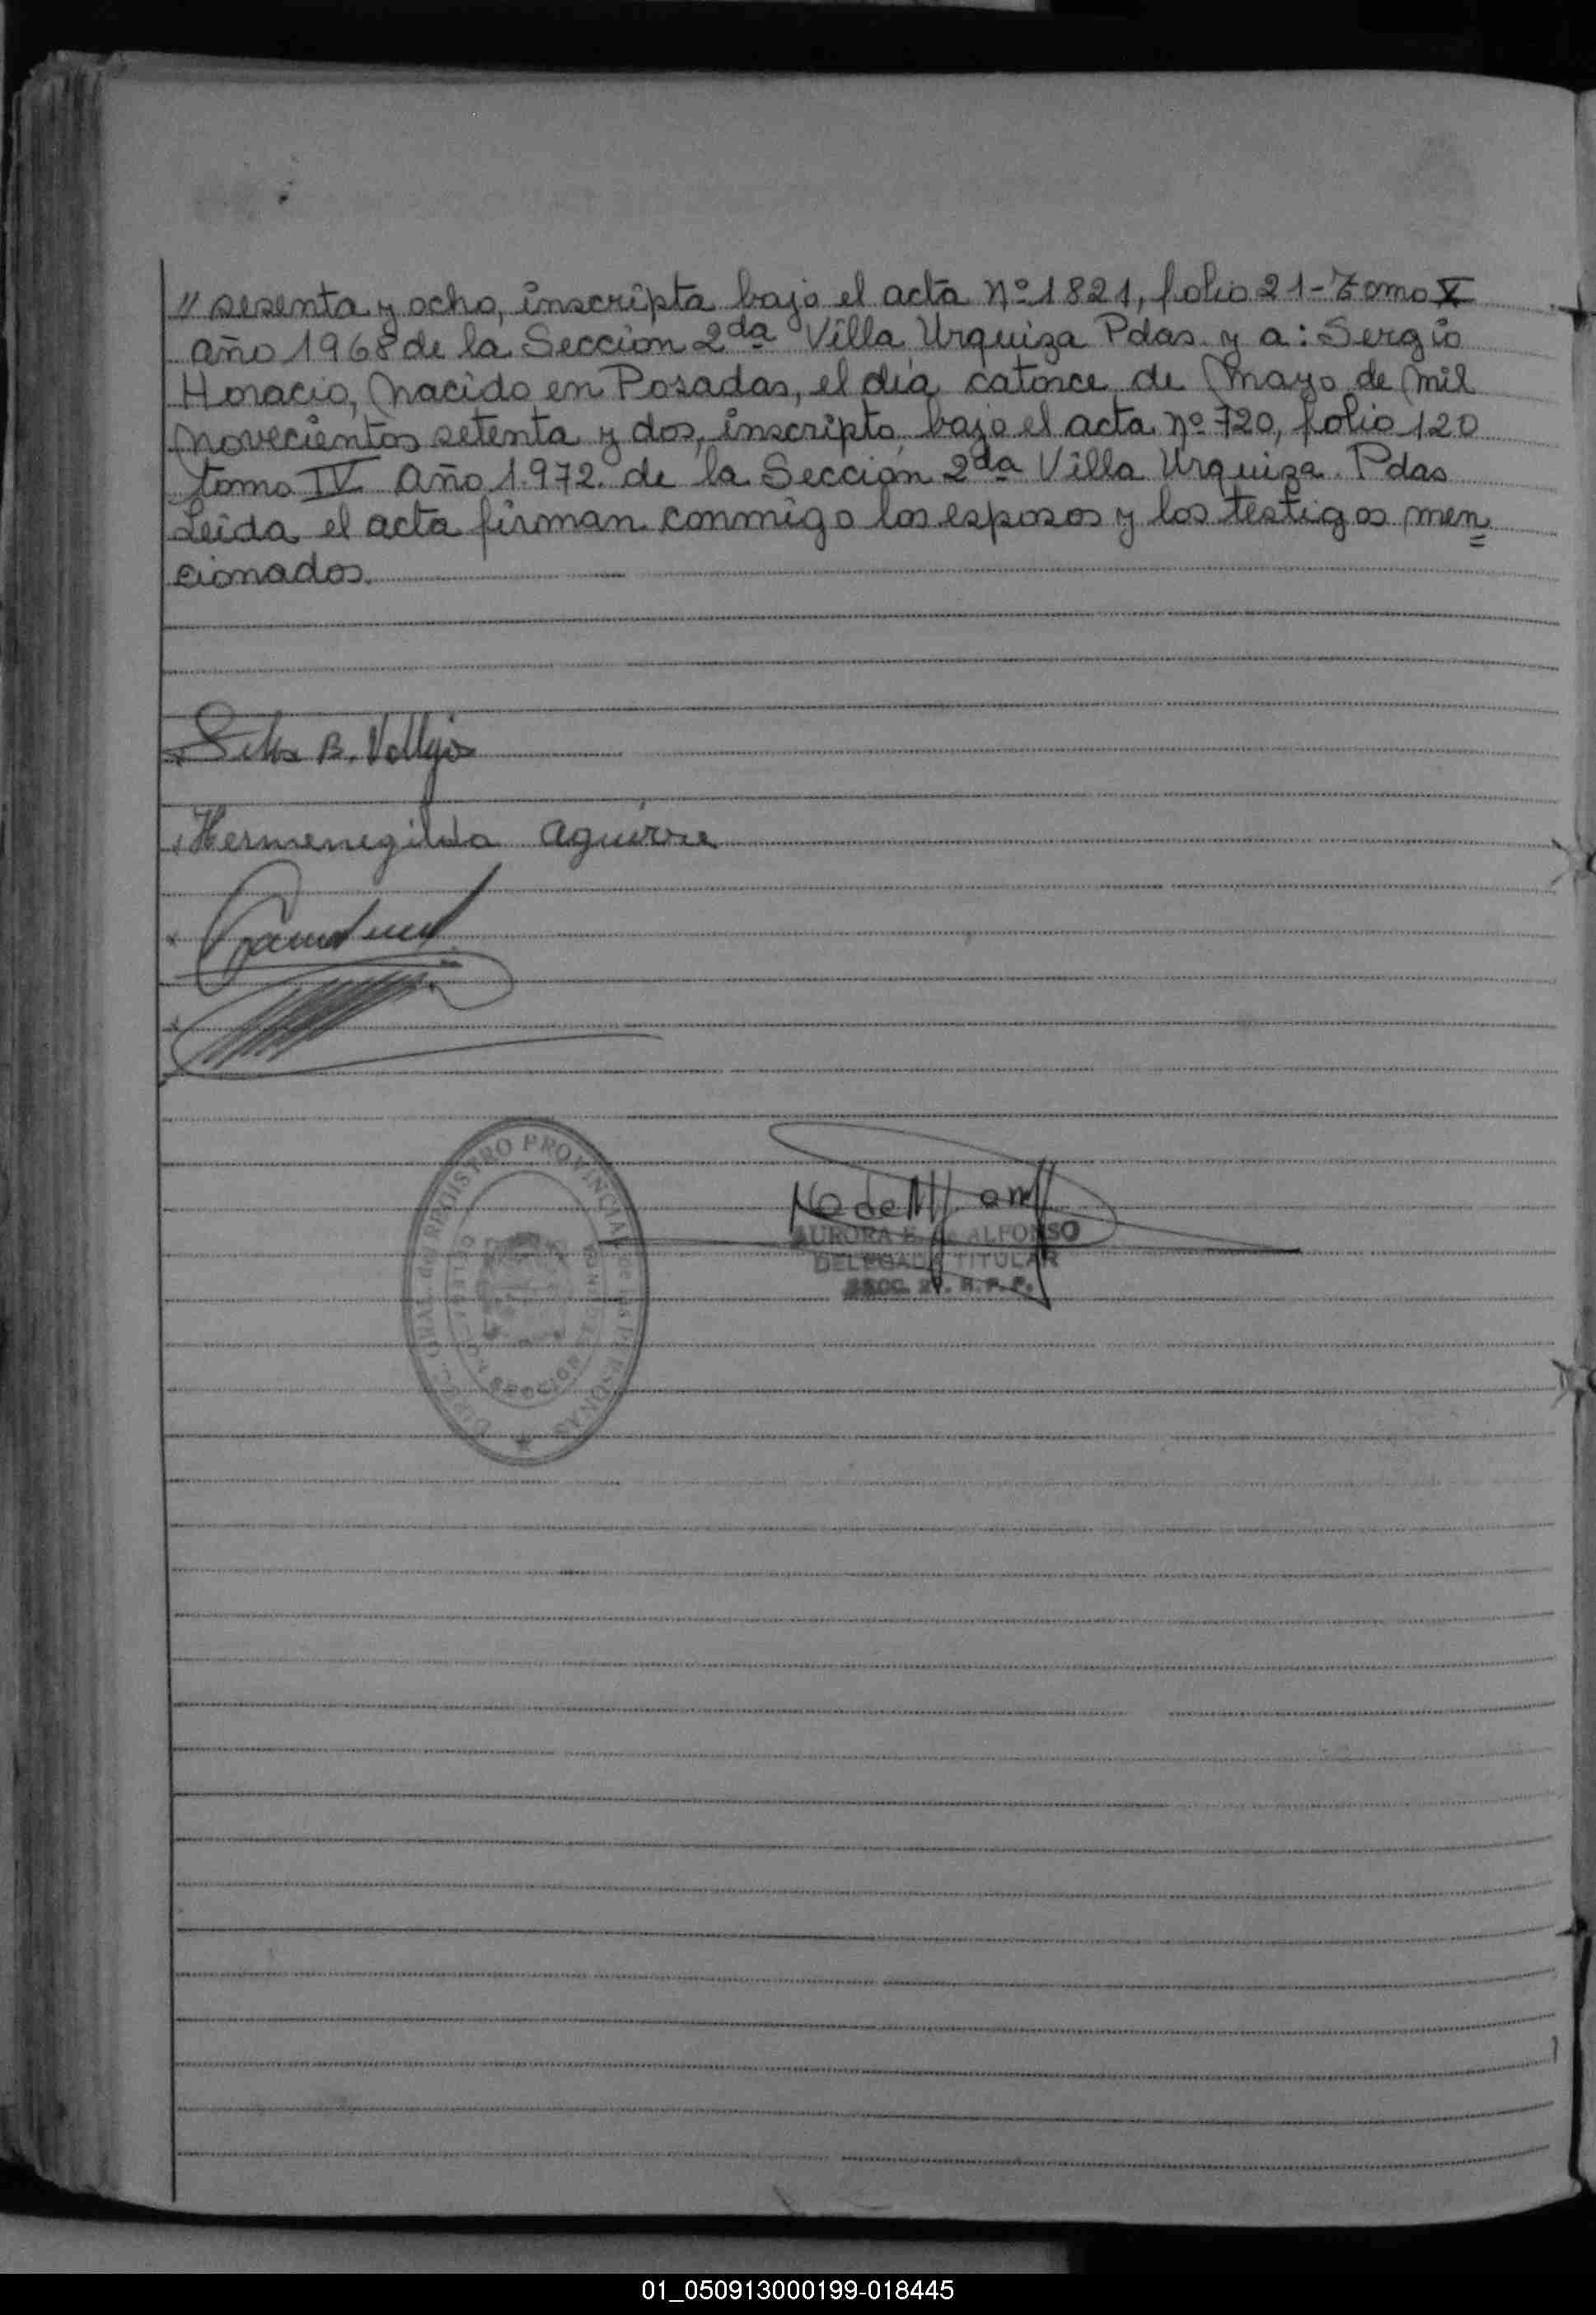 // sesenta y ocho, inscripta bajo el acta Nº 1821, folio 21 - Tomo X
año 1968 de la Sección 2da Villa Urquiza Pdas y a: Sergio
Horacio, Nacido en Posadas, el día catorce de Mayo de Mil
Novecientos setenta y dos, inscripto bajo el acta nº 720, folio 120
tomo IV Año 1.972. de la Sección 2da Villa Urquiza. Pdas
Leida el acta firman conmigo los esposos y los testigos men=
cionados.
B.
Hermenegilda Aguirre
DIREC. GRAL. del REGISTRO PROVINCIAL de las PERSONAS
SECCION
AURORA E. de ALFONSO
DELEGADA TITULAR
SECC. 2ª. R. P. P.
01_050913000199-018445